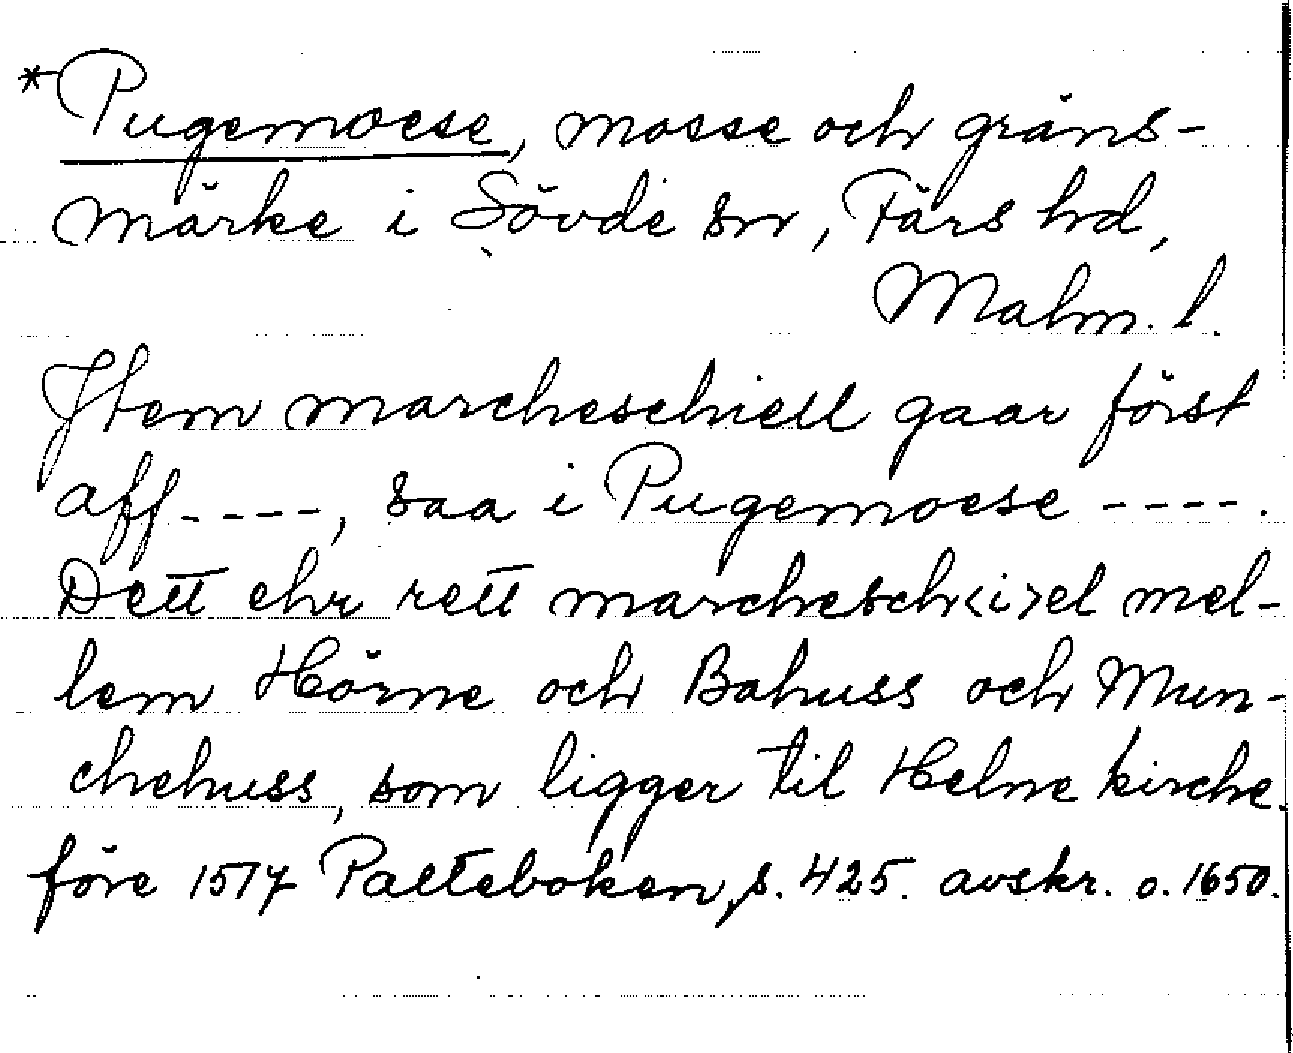 *Pugemoese, mosse och gräns-
märke i Sövde sn, Färs hd,
Malm. l.
Jtem marcheschiell gaar först
aff ----, saa i Pugemoese ----.
Dett ehr rett marchesch<i>el mel-
lem Hörne och Bahuss och Mun-
chehuss, som ligger til Helne kirche.
före 1517 Palteboken, s. 425. avskr. o. 1650.